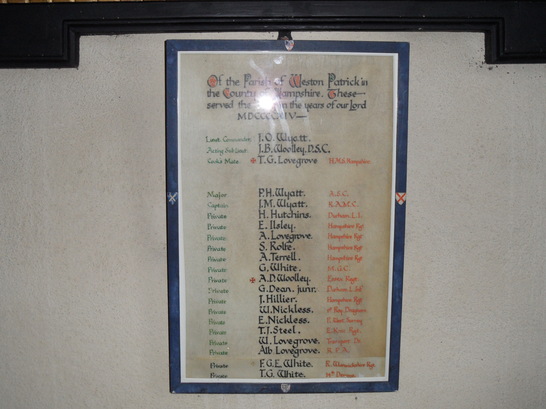 Of the Parish of Weston Patrick in
the County of Hampshire. These
served the in the years of our Lord
Lieut. Commander J.O. Wyatt.
Acting Sub Lieut. J.B. Woolley. D.S.C.
Cook's Mate T.G. Lovegrove H.M.S. Hampshire
Major P.H. Wyatt. A.S.C.
Captain J.M. Wyatt. R.A.M.C.
Private H. Hutchins. Durham L.I.
Private E. Ilsley. Hampshire Rgt
Private A. Lovegrove. Hampshire Rgt
Private S. Rolfe. Hampshire Rgt
Private A. Terrell. Hampshire Rgt
Private G. White. M.G.C.
Private A.D. Woolley. Essex Regt
Private G. Dean. junr. Durham L. Inf
Private J. Hillier. Hampshire Rgt
Private W. Nickless. Dragoons
Private E. Nickless. Surrey
Private T.J. Steel. Rgt
Private W. Lovegrove. Transport
Private Alb Lovegrove. R.F.A.
Private F.G.E. White. R. Warwickshire Rgt
Private T.G. White.